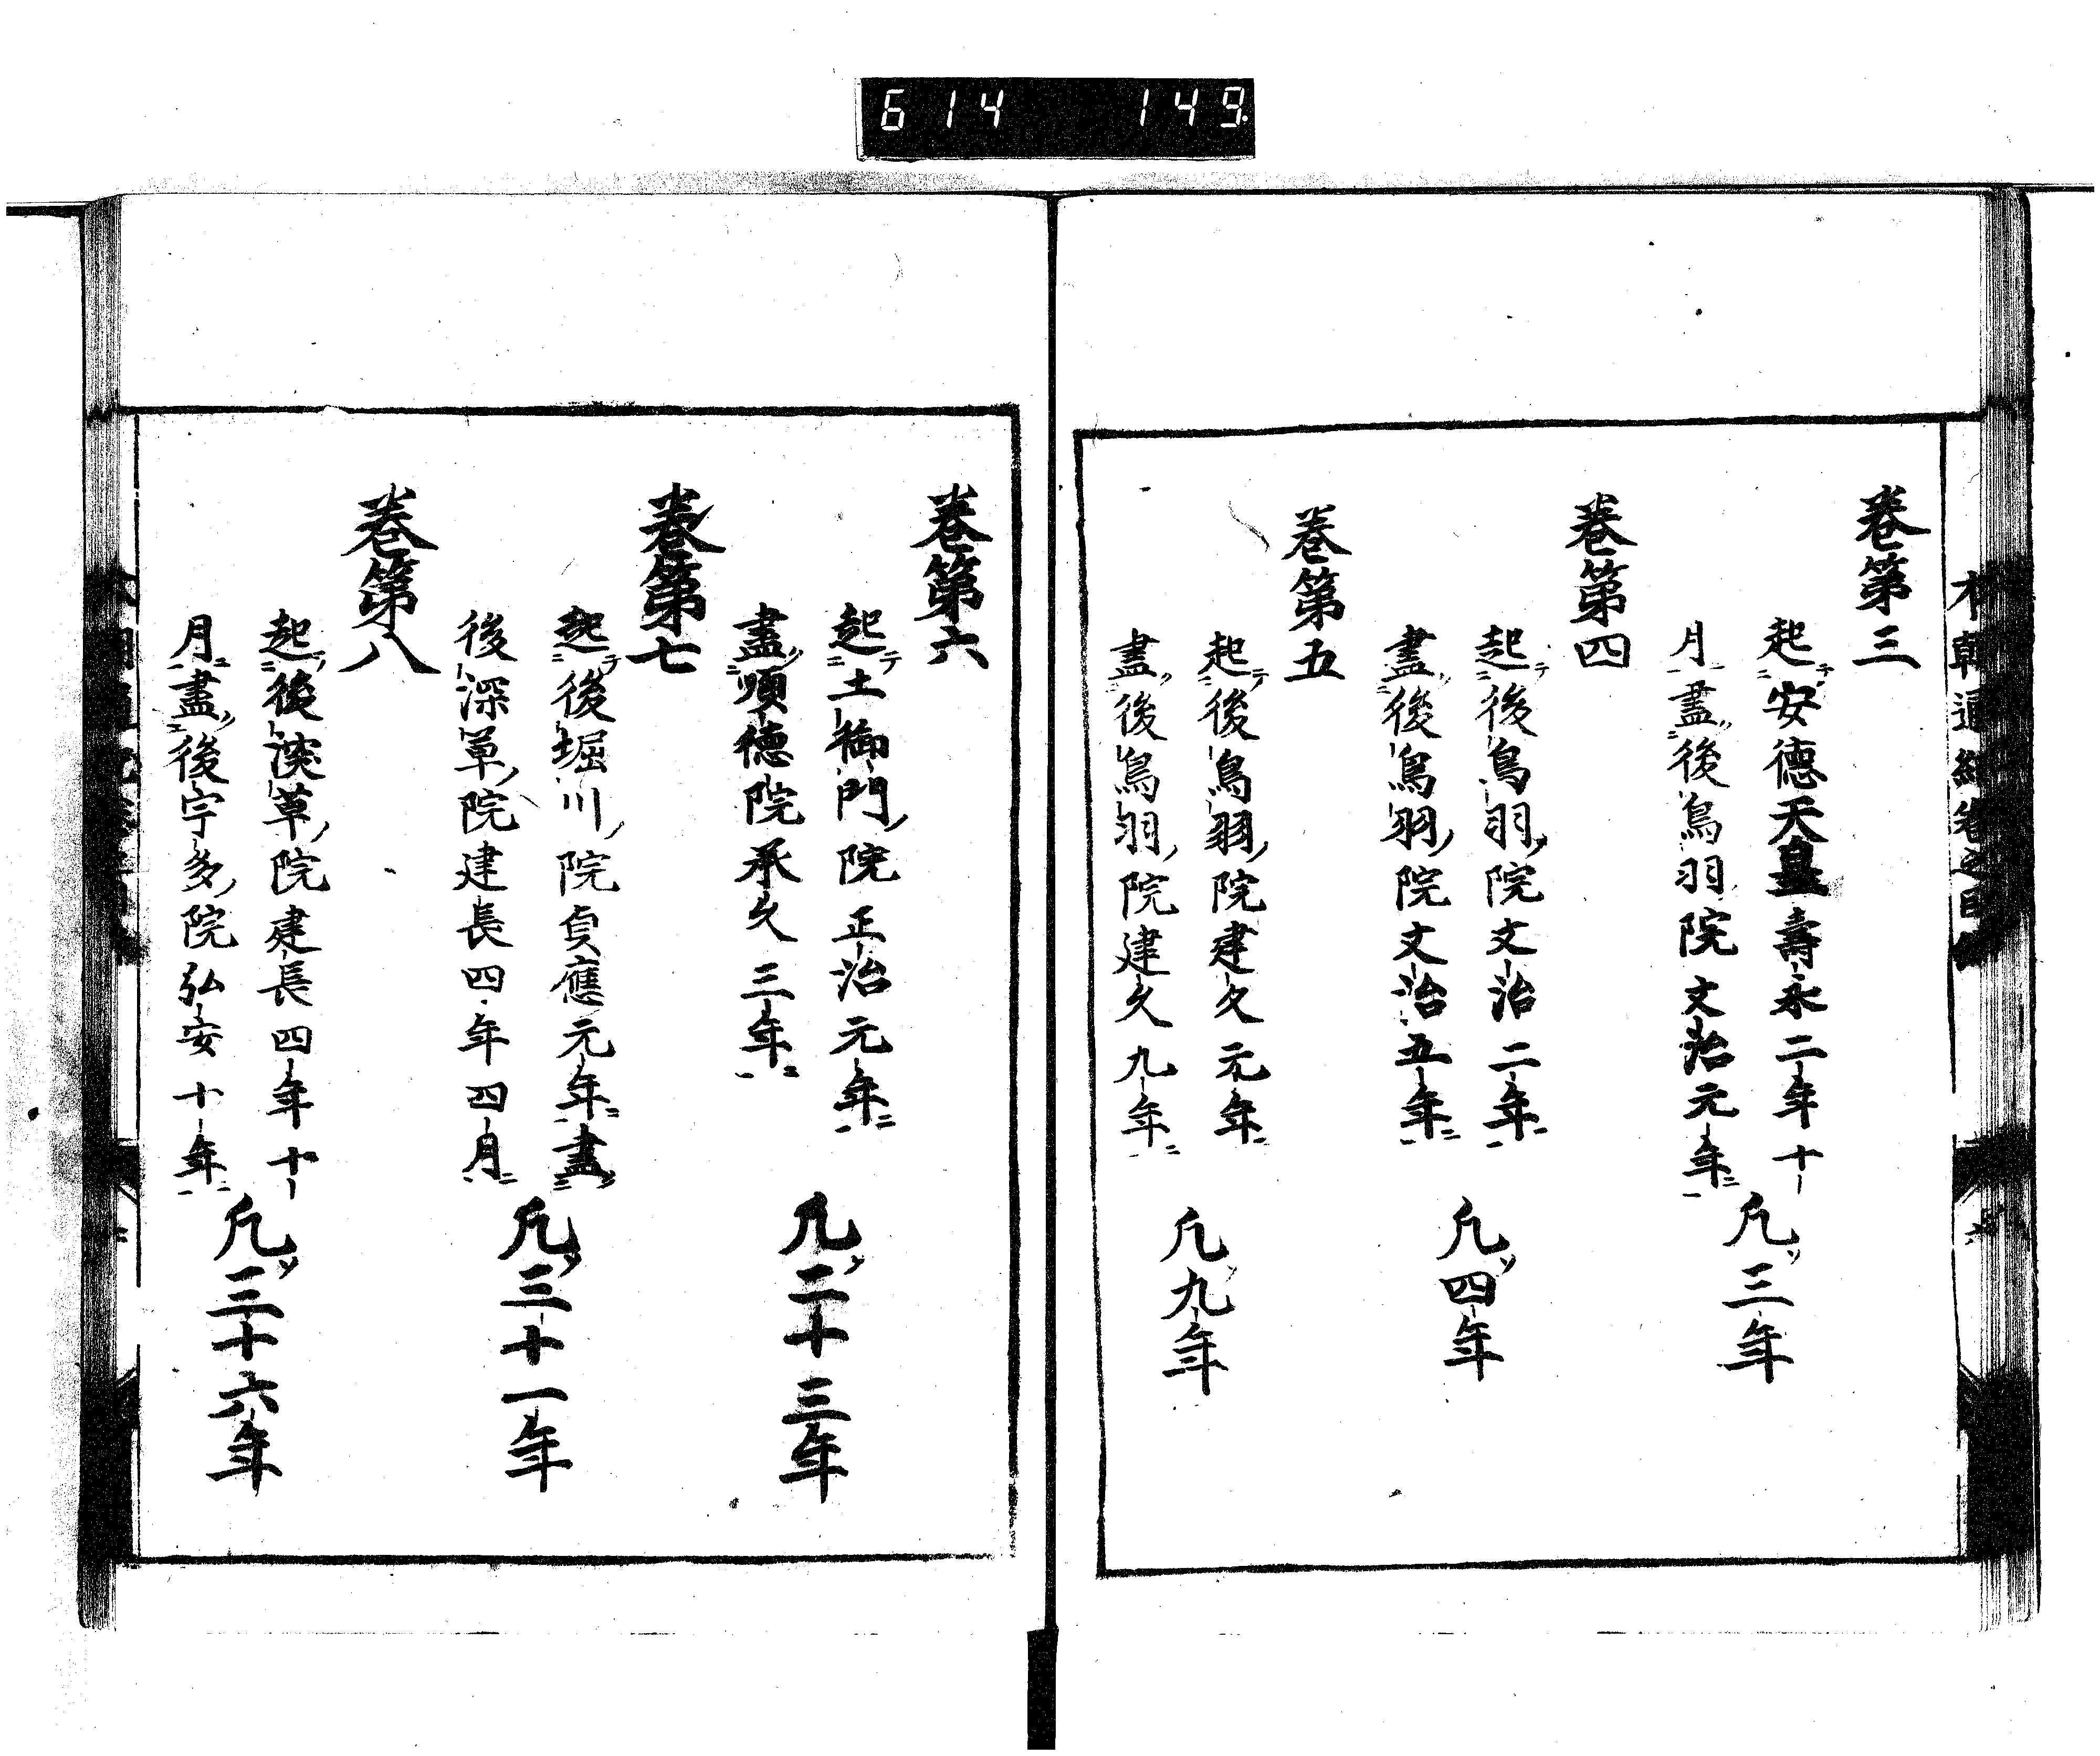 614 149
本朝通紀卷之目
卷第三
起安德天皇壽永二年十
月盡後鳥羽院文治元年
凢三年
卷第四
起後鳥羽院文治二年
盡後鳥羽院文治五年
凢四年
卷第五
起後鳥羽院建久元年
盡後鳥羽院建久九年
凢九年
卷第六
起土御門院正治元年
盡順德院承久三年
凢二十三年
卷第七
起後堀川院貞應元年盡
後深草院建長四年四月
凢三十一年
卷第八
起後深草院建長四年十
月盡後宇多院弘安十年
凢三十六年